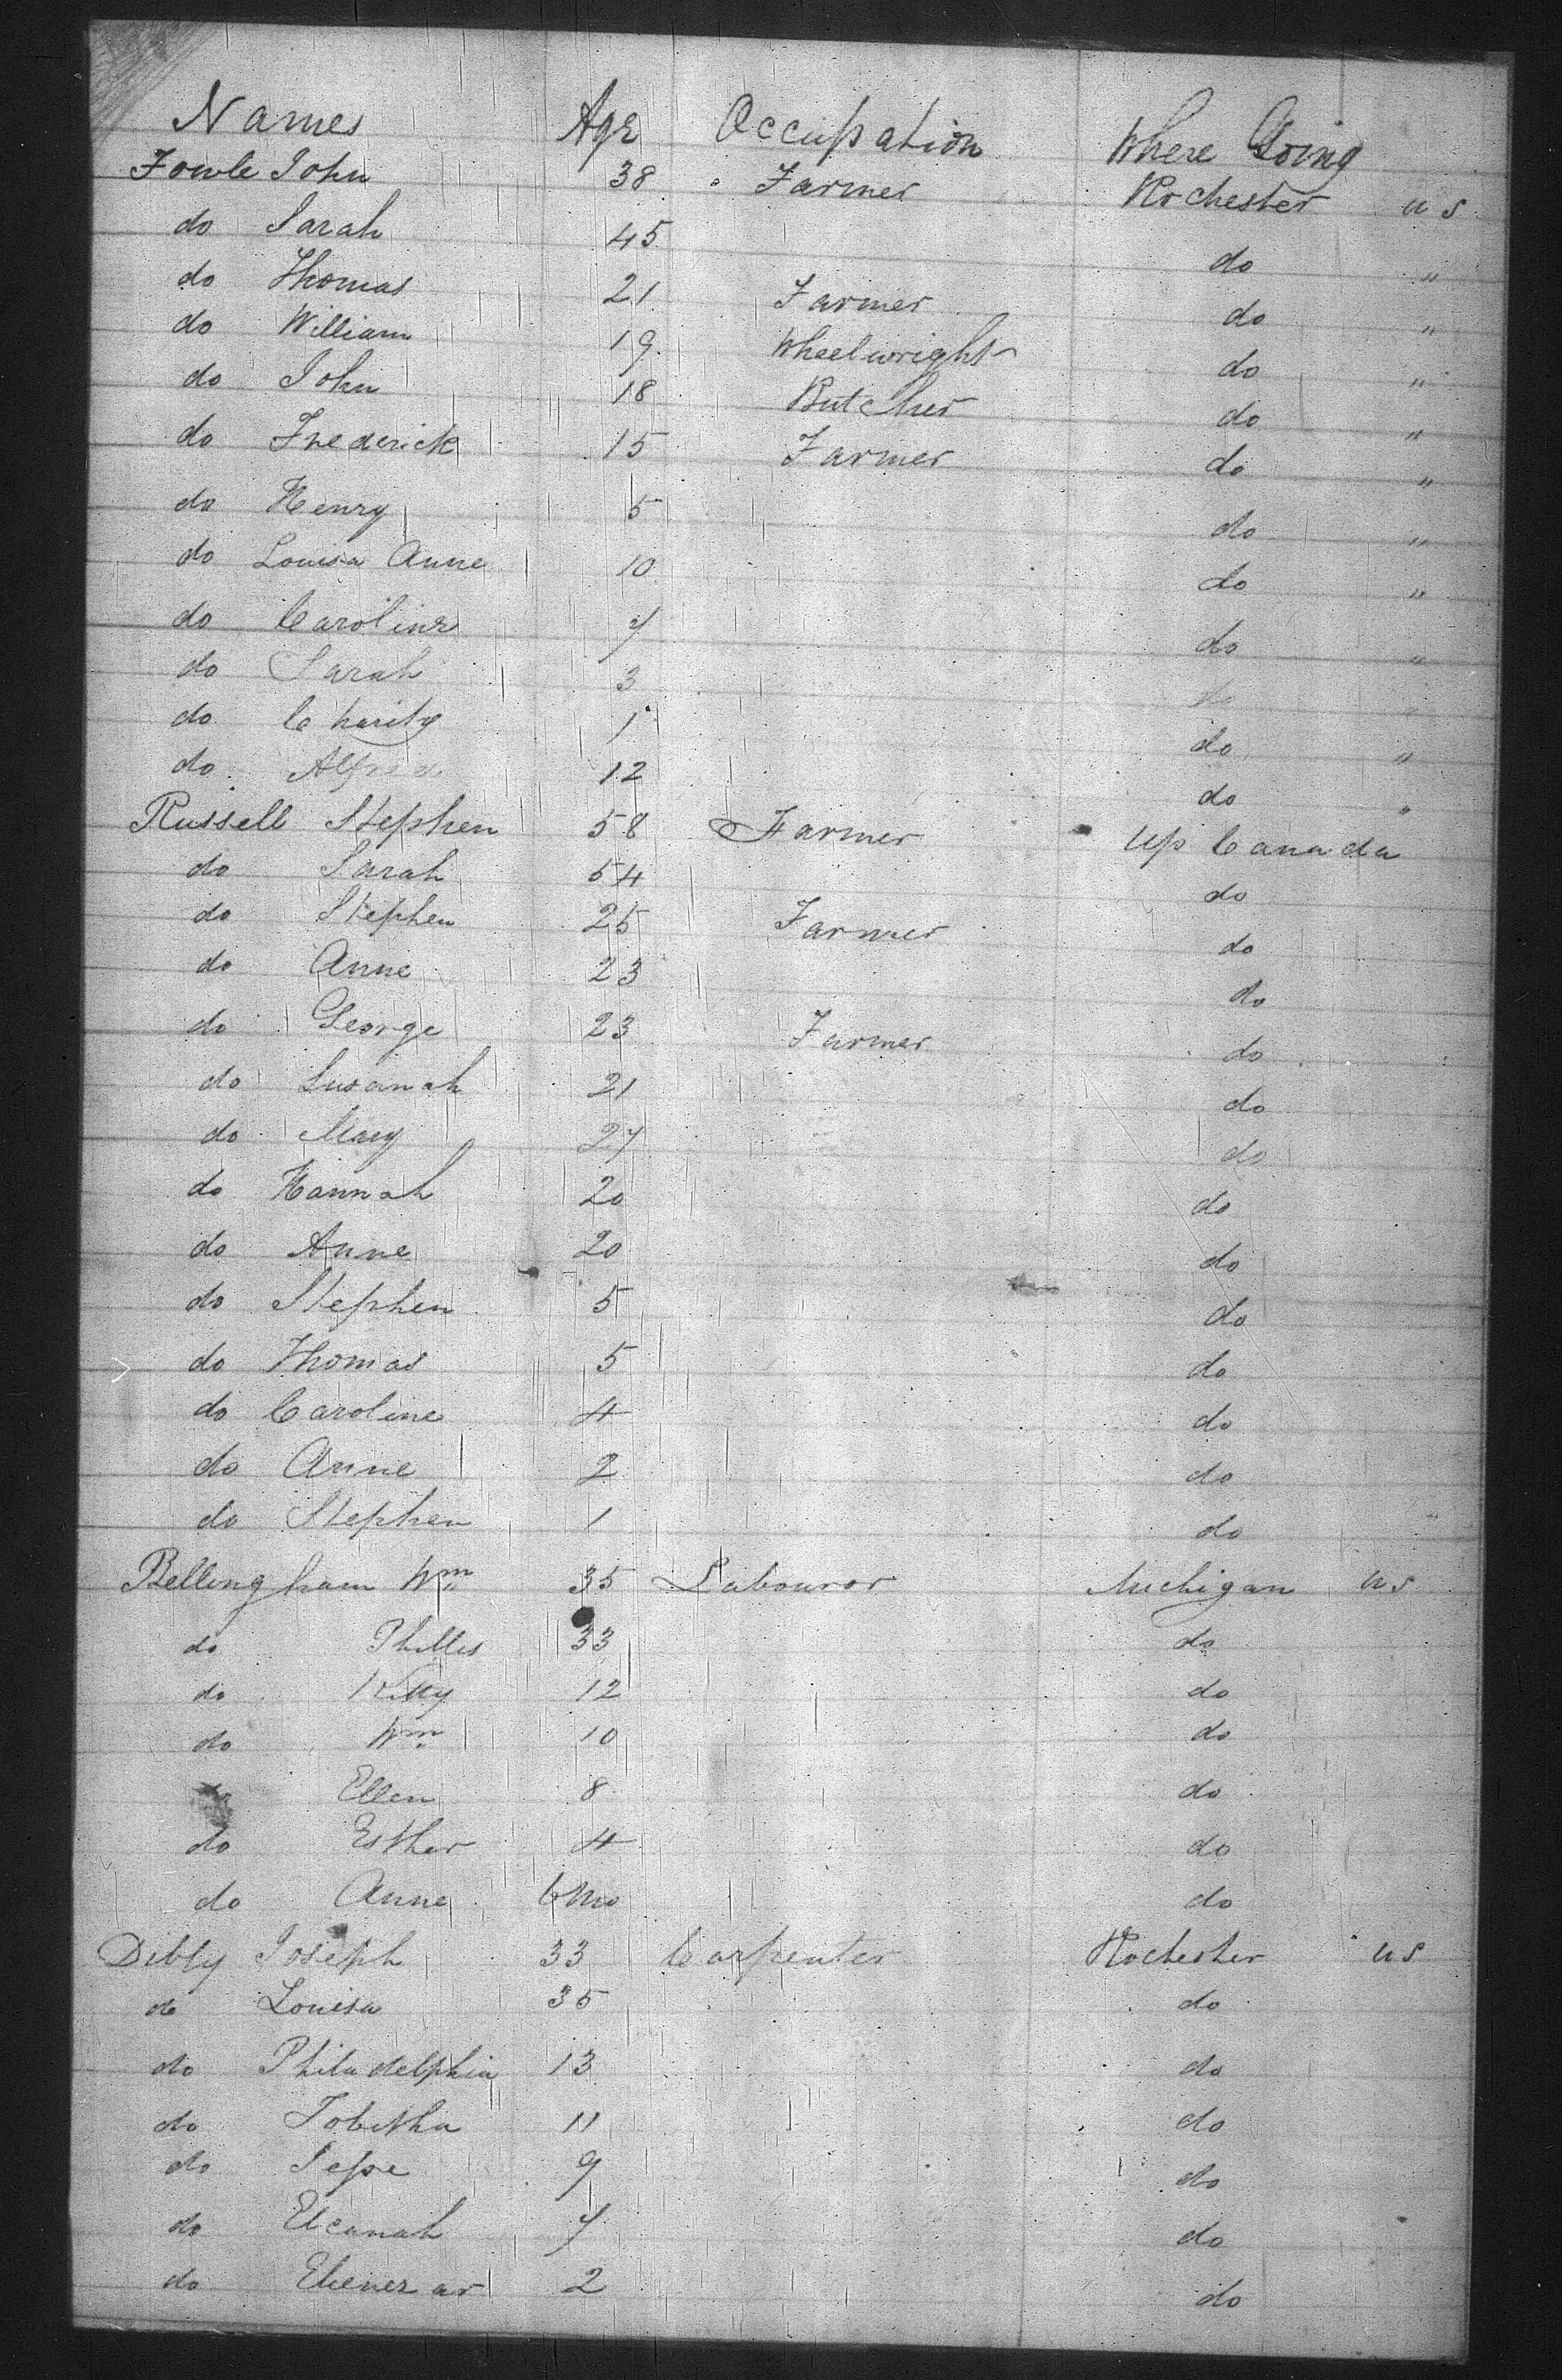 Names Age Occupation Where Going
Fowle John 38 Farmer Rochester us
do Sarah 45 do "
do Thomas 21 Farmer do "
do William 19 Wheelwright do "
do John 18 Butcher do "
do Frederick 15 Farmer do "
do Henry 5 do "
do Louisa Anne 10 do "
do Caroline 7 do "
do Sarah 3 do "
do Charity 1 do "
do Alfred 12 do "
Russell Stephen 58 Farmer Up Canada
do Sarah 54 do
do Stephen 25 Farmer do
do Anne 23 do
do George 23 Farmer do
do Susanah 21 do
do Mary 27 do
do Hannah 20 do
do Anne 20 do
do Stephen 5 do
do Thomas 5 do
do Caroline 4 do
do Anne 2 do
do Stephen 1 do
Bellingham Wm 35 Labouror Michigan us
do Phillis 33 do
do Kitty 12 do
do Wm 10 do
Ellen 8 do
do Esther 4 do
do Anne 6 mo do
Dibly Joseph 33 Carpenter Rochester us
do Louisa 35 do
do Philadelphia 13 do
do Tobitha 11 do
do 9 do
do Elcanah 7 do
do Ebenezar 2 do